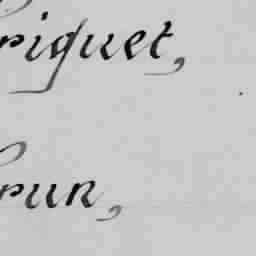 riquet,
run,